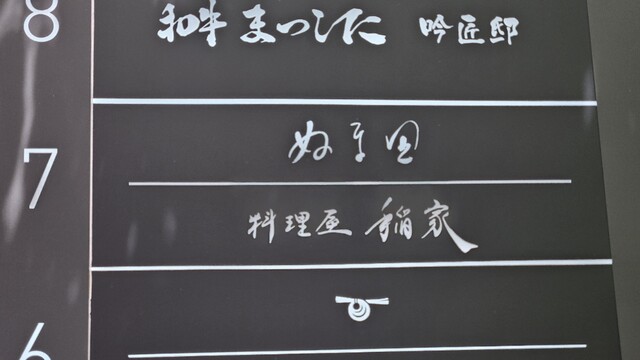 8
和牛 まつした 吟匠邸
7
ぬま田
料理屋 稲家
6